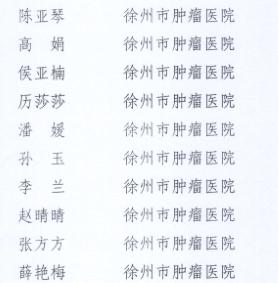 陈亚琴 徐州市肿瘤医院
高 娟 徐州市肿瘤医院
侯亚楠 徐州市肿瘤医院
历莎莎 徐州市肿瘤医院
潘 媛 徐州市肿瘤医院
孙 玉 徐州市肿瘤医院
李 兰 徐州市肿瘤医院
赵晴晴 徐州市肿瘤医院
张方方 徐州市肿瘤医院
薛艳梅 徐州市肿瘤医院